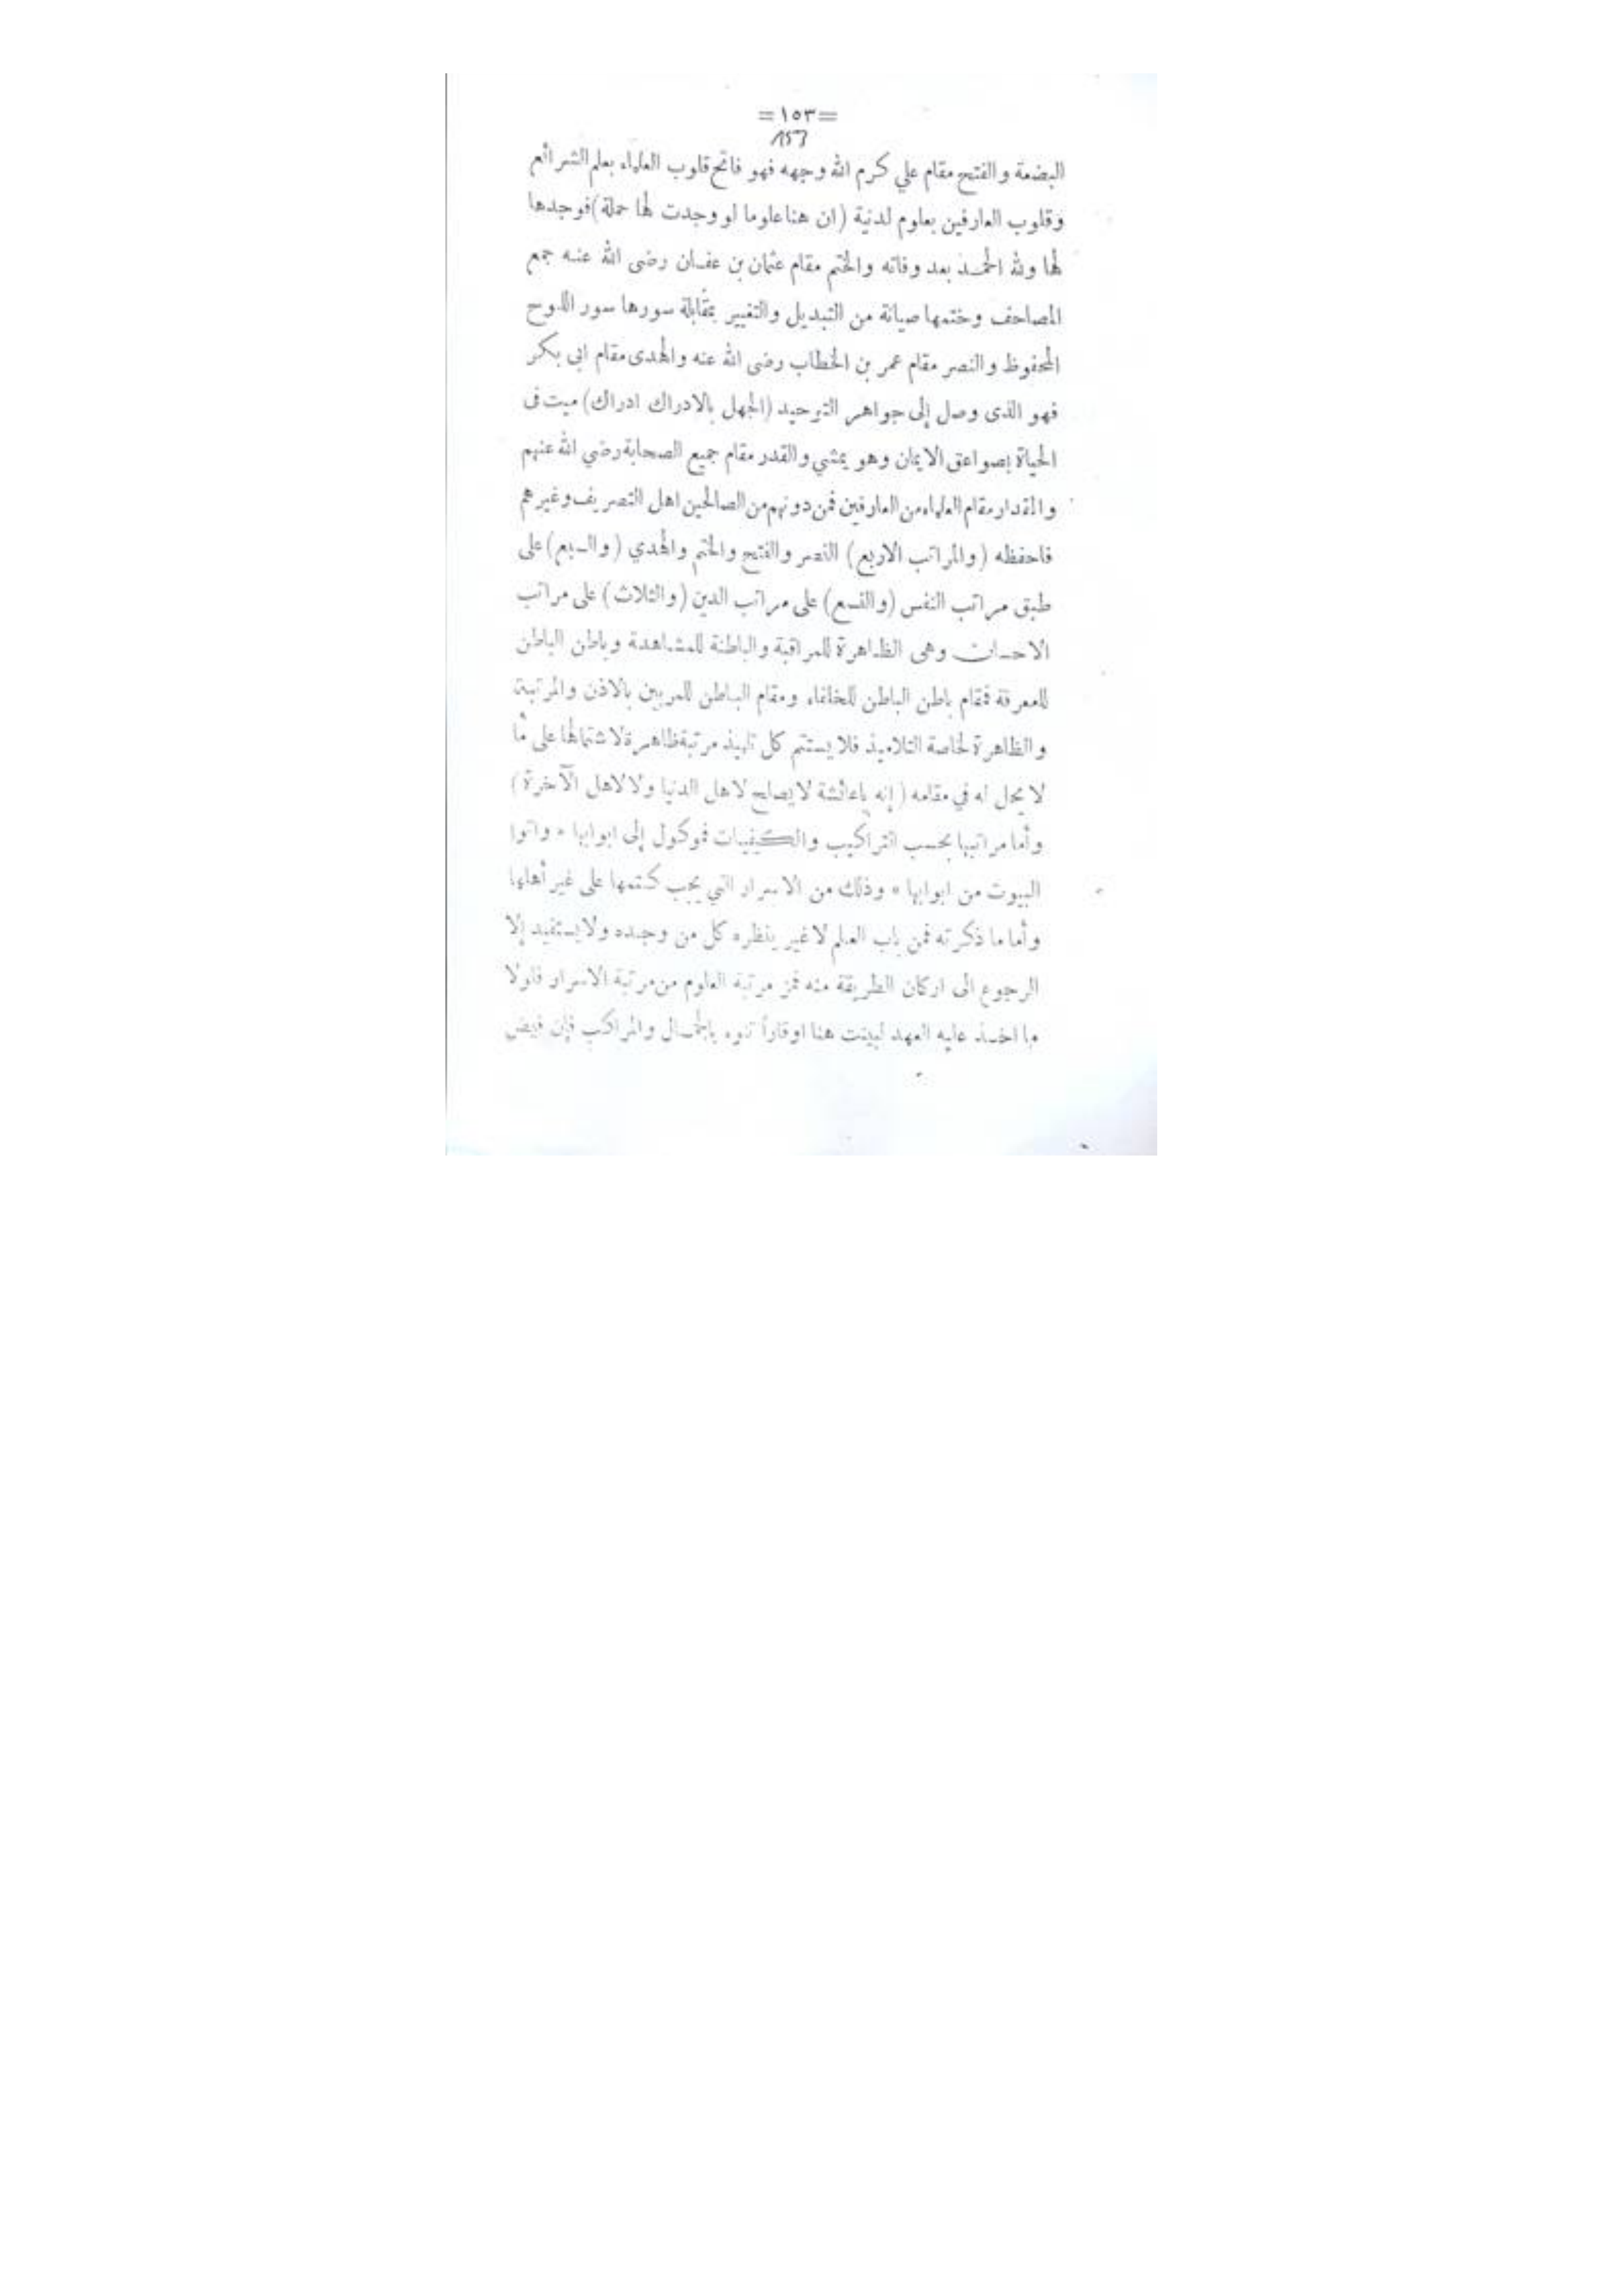 =١٥٣=
153
البضعة والفتح مقام علي كرم الله وجهه فهو فاتح قلوب العلماء بعلم الشرائع
وقلوب العارفين بعلوم لدنية (ان هنا علوما لو وجدت لها حملة) فوجدها
لها ولله الحمد بعد وفاته والختم مقام عثمان بن عفان رضى الله عنه جمع
المصاحف وختمها صيانة من التبديل والتغيير بمقابلة سورها سور اللوح
المحفوظ والنصر مقام عمر بن الخطاب رضى الله عنه والهدى مقام ابى بكر
فهو الذى وصل إلى جواهر التوحيد (الجهل بالادراك ادراك) ميت فى
الحياة بصواعق الايمان وهو يمشي والقدر مقام جميع الصحابة رضي الله عنهم
والمقدار مقام العلماء من العارفين فمن دونهم من الصالحين اهل التصريف وغيرهم
فاحفظه (والمراتب الاربع) النصر والفتح والختم والهدي (والسبع) على
طبق مراتب النفس (والتسع) على مراتب الدين (والثلاث) على مراتب
الاحسان وهى الظاهرة للمراقبة والباطنة للمشاهدة وباطن الباطن
للمعرفة فمقام باطن الباطن للخلفاء ومقام الباطن للمربين بالاذن والمرتبة
والظاهرة لخاصة التلاميذ فلا يستتم كل تلميذ مرتبة ظاهرة لاشتمالها على ما
لا يحل له في مقامه (إنه ياعائشة لا يصلح لاهل الدنيا ولا لاهل الآخرة)
وأما مراتبها بحسب التراكيب والكيفيات فموكول إلى ابوابها * واتوا
البيوت من ابوابها * وذلك من الاسرار التي يجب كتمها على غير أهلها
وأما ما ذكرته فمن باب العلم لا غير ينظره كل من وجده ولا يستفيد إلا
الرجوع الى اركان الطريقة منه فمز مرتبة العلوم من مرتبة الاسرار فلولا
ما اخذ عليه العهد لبينت هنا اوقاراً تنوء بالجمال والمراكب فإن فيض